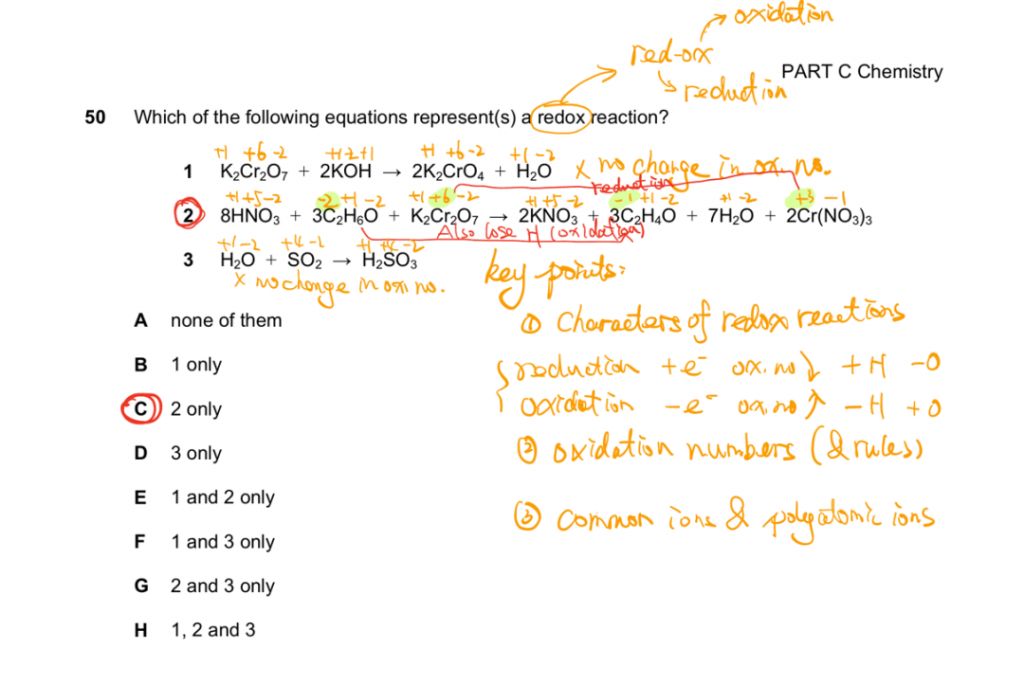 oxidation
red-ox
reduction
PART C Chemistry
50 Which of the following equations represent(s) a redox reaction?
+1 +6 -2 +1 -2 +1 +1 +6 -2 +1 -2
1 K₂Cr₂O₇ + 2KOH → 2K₂CrO₄ + H₂O × no change in ox. no.
reduction
+1 +5 -2 -2 +1 -2 +1 +6 -2 +1 +5 -2 -1 +1 -2 +1 -2 +3 -1
2 8HNO₃ + 3C₂H₆O + K₂Cr₂O₇ → 2KNO₃ + 3C₂H₄O + 7H₂O + 2Cr(NO₃)₃
Also lose H (oxidation)
+1 -2 +4 -2 +1 +4 -2
3 H₂O + SO₂ → H₂SO₃
× no change in oxi no.
key points:
A none of them
① Characters of redox reactions
B 1 only
reduction +e⁻ ox. no ↓ +H -O
C 2 only
oxidation -e⁻ ox. no ↑ -H +O
D 3 only
② oxidation numbers (& rules)
E 1 and 2 only
③ common ions & polyatomic ions
F 1 and 3 only
G 2 and 3 only
H 1, 2 and 3